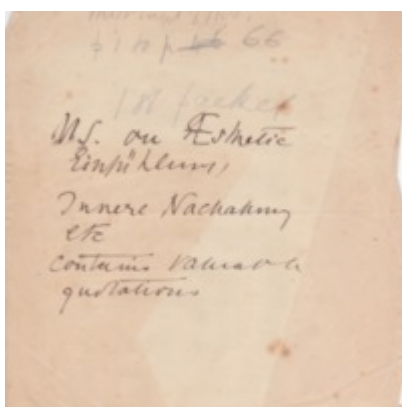 p 1 to p 66
1st packet
MS. on Æsthetic
Einfühlung,
Innere Nachahmung
etc
contains valuable
quotations